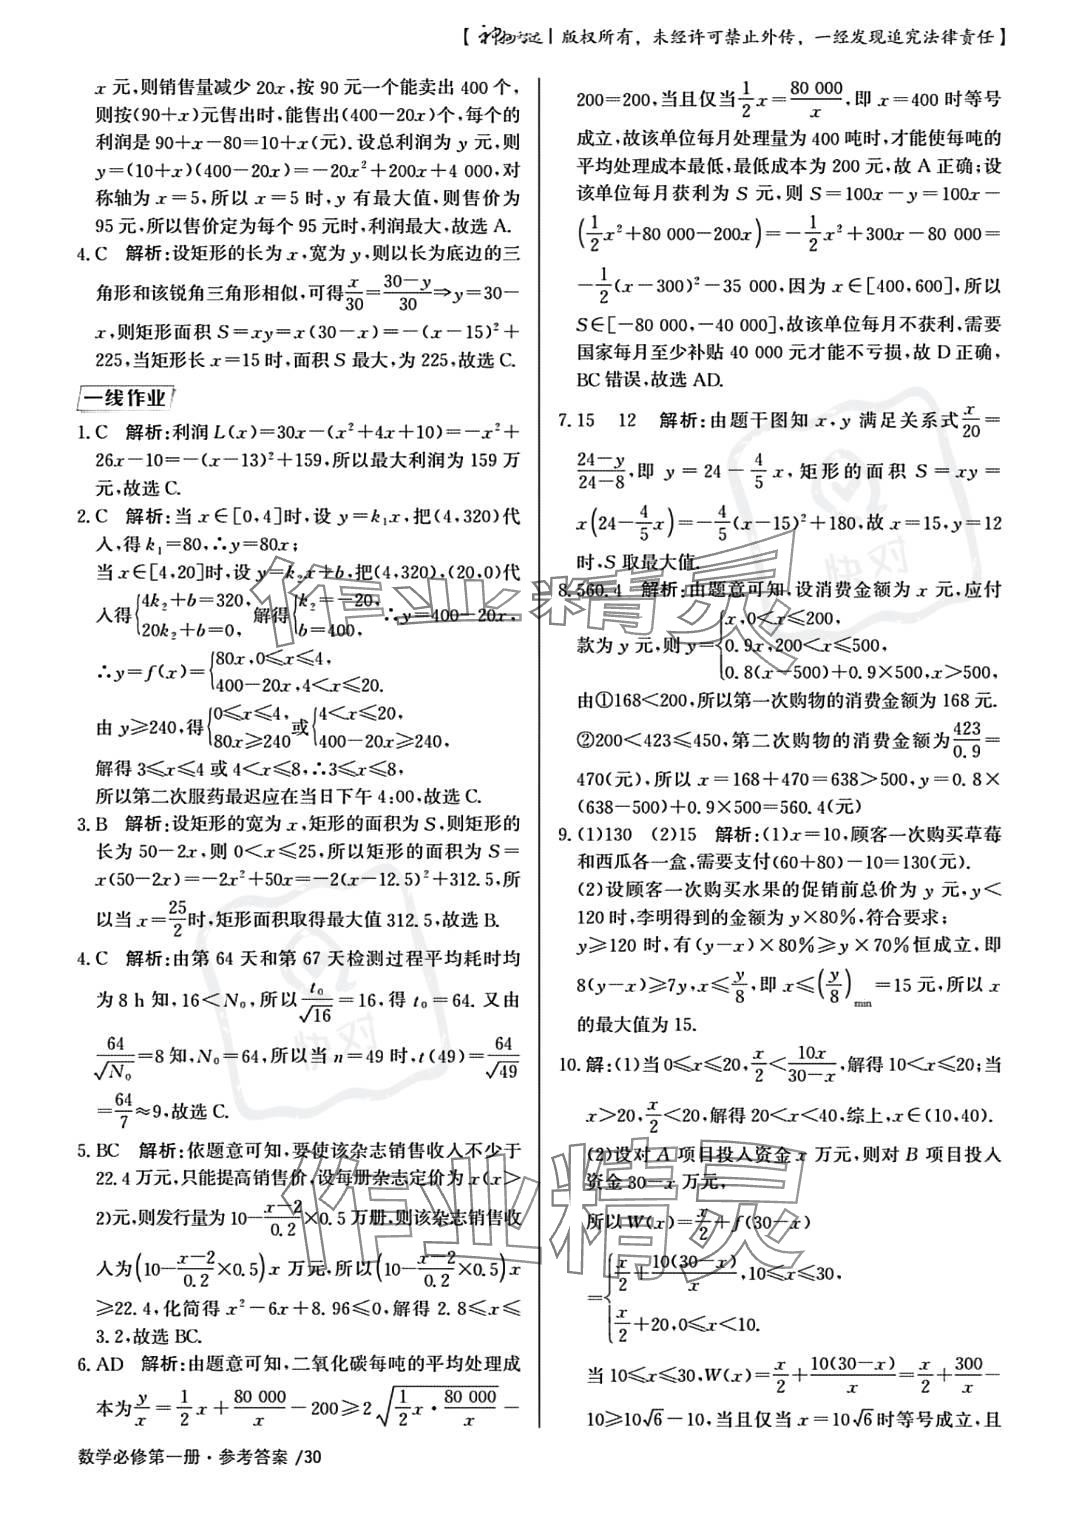 【神奶方远|版权所有，未经许可禁止外传，一经发现追究法律责任】
x 元,则销售量减少 20x,按 90 元一个能卖出 400 个,
则按(90+x)元售出时,能售出(400-20x)个,每个的
利润是 90+x-80=10+x(元). 设总利润为 y 元,则
y=(10+x)(400-20x)=-20x²+200x+4 000,对
称轴为 x=5,所以 x=5 时,y 有最大值,则售价为
95 元,所以售价定为每个 95 元时,利润最大,故选 A.
4. C 解析:设矩形的长为 x,宽为 y,则以长为底边的三
角形和该锐角三角形相似,可得x/30=(30-y)/30⇒y=30-
x,则矩形面积 S=xy=x(30-x)=-(x-15)²+
225,当矩形长 x=15 时,面积 S 最大,为 225,故选 C.
一线作业
1. C 解析:利润 L(x)=30x-(x²+4x+10)=-x²+
26x-10=-(x-13)²+159,所以最大利润为 159 万
元,故选 C.
2. C 解析:当 x∈[0,4]时,设 y=k₁x,把(4,320)代
入,得 k₁=80,∴y=80x;
当 x∈[4,20]时,设 y=k₂x+b,把(4,320),(20,0)代
入得{4k₂+b=320, 20k₂+b=0, 解得{k₂=-20, b=400, ∴y=400-20x,
∴y=f(x)={80x,0≤x≤4, 400-20x,4<x≤20.
由 y≥240,得{0≤x≤4, 80x≥240 或{4<x≤20, 400-20x≥240,
解得 3≤x≤4 或 4<x≤8,∴3≤x≤8,
所以第二次服药最迟应在当日下午 4:00,故选 C.
3. B 解析:设矩形的宽为 x,矩形的面积为 S,则矩形的
长为 50-2x,则 0<x≤25,所以矩形的面积为 S=
x(50-2x)=-2x²+50x=-2(x-12.5)²+312.5,所
以当 x=25/2时,矩形面积取得最大值 312.5,故选 B.
4. C 解析:由第 64 天和第 67 天检测过程平均耗时均
为 8 h 知,16<N₀,所以t₀/√16=16,得 t₀=64. 又由
64/√N₀=8 知,N₀=64,所以当 n=49 时,t(49)=64/√49
=64/7≈9,故选 C.
5. BC 解析:依题意可知,要使该杂志销售收入不少于
22.4 万元,只能提高销售价,设每册杂志定价为 x(x>
2)元,则发行量为 10-(x-2)/0.2×0.5 万册,则该杂志销售收
入为(10-(x-2)/0.2×0.5)x 万元,所以(10-(x-2)/0.2×0.5)x
≥22.4,化简得 x²-6x+8.96≤0,解得 2.8≤x≤
3.2,故选 BC.
6. AD 解析:由题意可知,二氧化碳每吨的平均处理成
本为y/x=1/2x+80 000/x-200≥2√(1/2x·80 000/x)-
200=200,当且仅当1/2x=80 000/x,即 x=400 时等号
成立,故该单位每月处理量为 400 吨时,才能使每吨的
平均处理成本最低,最低成本为 200 元,故 A 正确;设
该单位每月获利为 S 元,则 S=100x-y=100x-
(1/2x²+80 000-200x)=-1/2x²+300x-80 000=
-1/2(x-300)²-35 000,因为 x∈[400,600],所以
S∈[-80 000,-40 000],故该单位每月不获利,需要
国家每月至少补贴 40 000 元才能不亏损,故 D 正确,
BC 错误,故选 AD.
7. 15 12 解析:由题干图知 x,y 满足关系式x/20=
(24-y)/(24-8),即 y=24-4/5x,矩形的面积 S=xy=
x(24-4/5x)=-4/5(x-15)²+180,故 x=15,y=12
时,S 取最大值.
8. 560.4 解析:由题意可知,设消费金额为 x 元,应付
款为 y 元,则 y={x,0<x≤200, 0.9x,200<x≤500, 0.8(x-500)+0.9×500,x>500,
由①168<200,所以第一次购物的消费金额为 168 元.
②200<423≤450,第二次购物的消费金额为423/0.9=
470(元),所以 x=168+470=638>500,y=0.8×
(638-500)+0.9×500=560.4(元)
9. (1)130 (2)15 解析:(1)x=10,顾客一次购买草莓
和西瓜各一盒,需要支付(60+80)-10=130(元).
(2)设顾客一次购买水果的促销前总价为 y 元,y<
120 时,李明得到的金额为 y×80%,符合要求;
y≥120 时,有(y-x)×80%≥y×70%恒成立,即
8(y-x)≥7y,x≤y/8,即 x≤(y/8)min=15 元,所以 x
的最大值为 15.
10. 解:(1)当 0≤x≤20,x/2<10x/(30-x),解得 10<x≤20;当
x>20,x/2<20,解得 20<x<40,综上,x∈(10,40).
(2)设对 A 项目投入资金 x 万元,则对 B 项目投入
资金 30-x 万元,
所以 W(x)=x/2+f(30-x)
={x/2+10(30-x)/x,10≤x≤30, x/2+20,0≤x<10.
当 10≤x≤30,W(x)=x/2+10(30-x)/x=x/2+300/x-
10≥10√6-10,当且仅当 x=10√6时等号成立,且
数学必修第一册·参考答案 /30
作业精灵
作业精灵
快对
快对